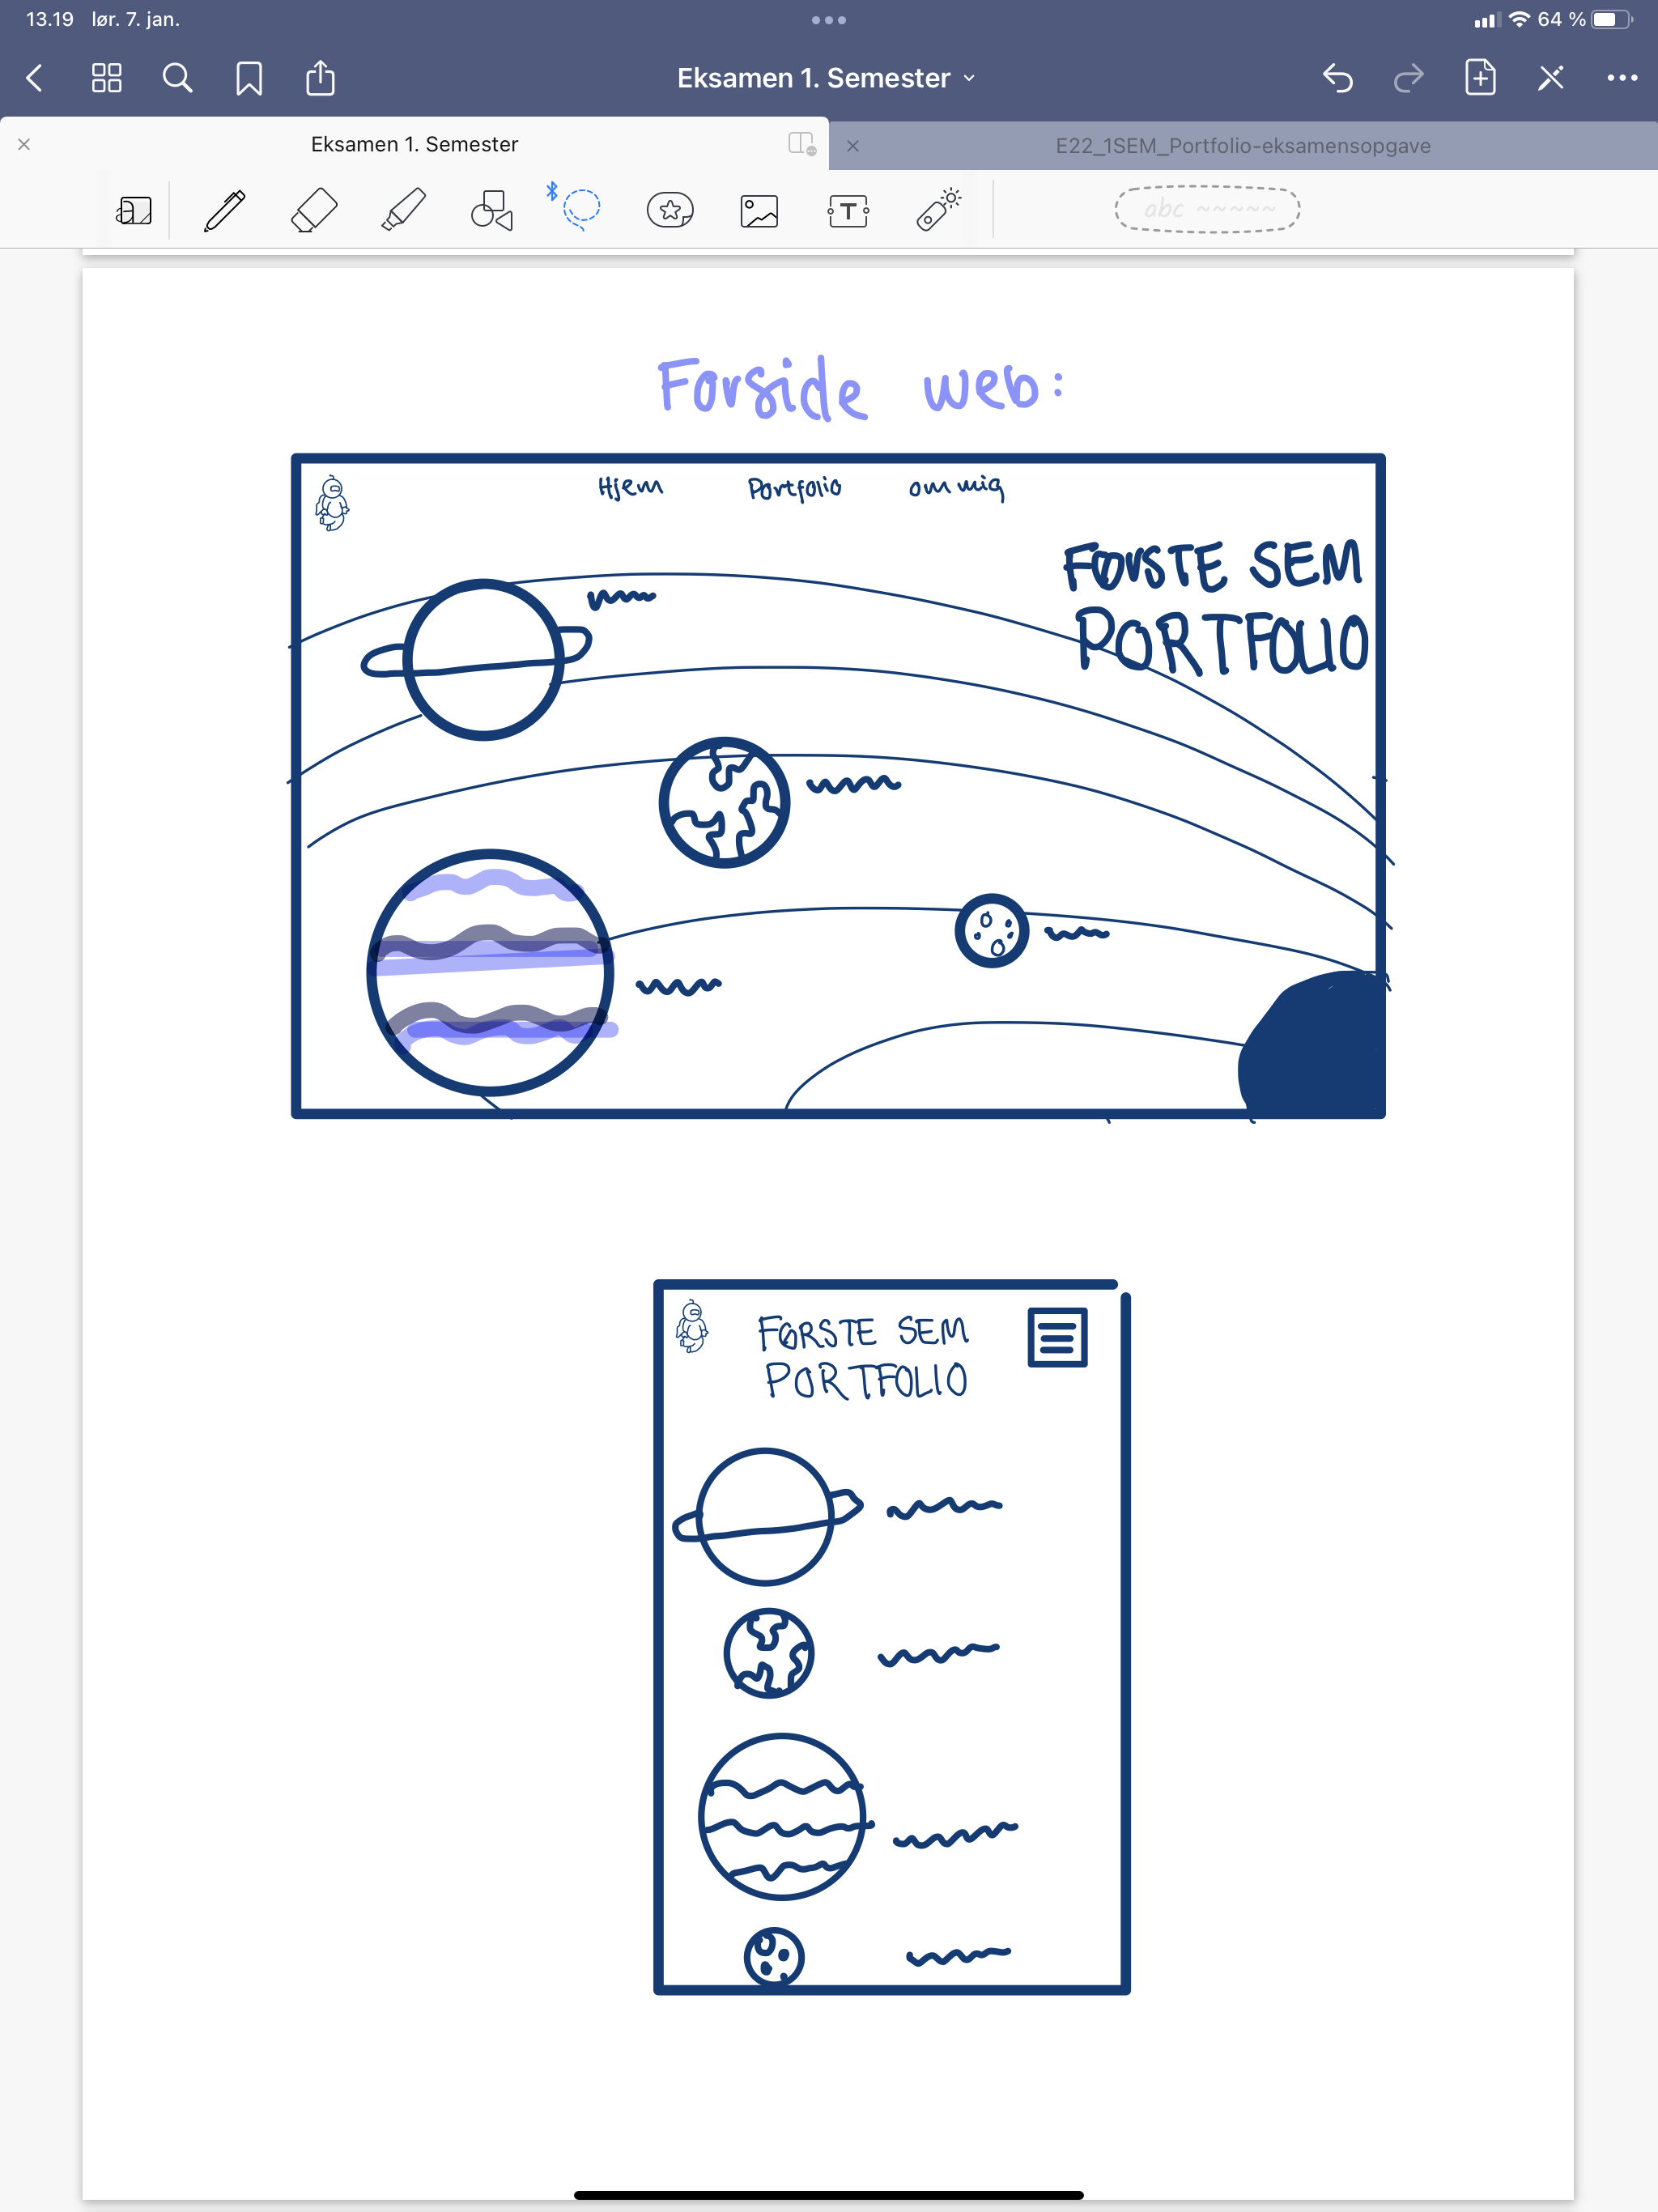 13.19 lør. 7. jan.
64 %
Eksamen 1. Semester
Eksamen 1. Semester
E22_1SEM_Portfolio-eksamensopgave
abc
T
Forside web:
Hjem Portfolio om mig
FØRSTE SEM
PORTFOLIO
FØRSTE SEM
PORTFOLIO